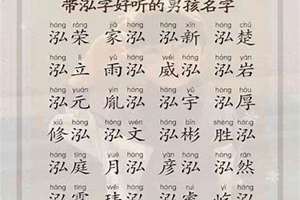 带泓字好听的男孩名字
hóng róng jiā hóng hóng xīn hóng chǔ
泓荣 家泓 泓新 泓楚
hóng lì yǔ hóng wēi hóng hóng yán
泓立 雨泓 威泓 泓岩
hóng yuán yìn hóng hóng yǔ hóng hòu
泓元 胤泓 泓宇 泓厚
xiū hóng hóng wén hóng bīn shèng hóng
修泓 泓文 泓彬 胜泓
hóng tíng yuè hóng yàn hóng hóng rán
泓庭 月泓 彦泓 泓然